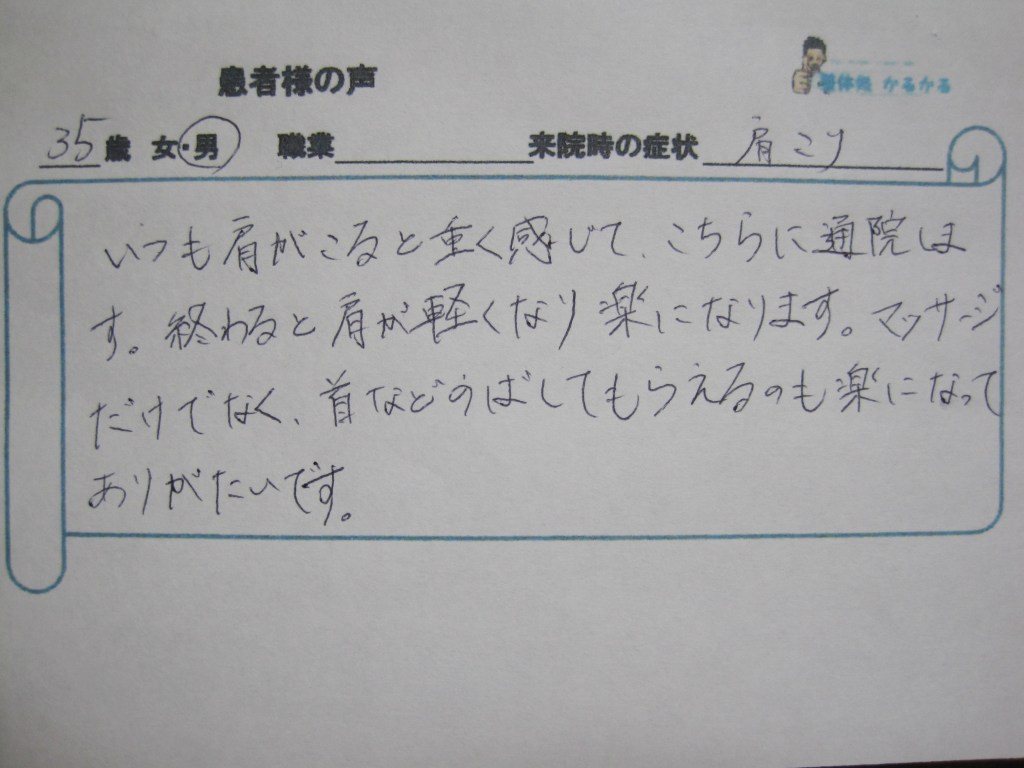 患者様の声
整体処 かるかる
35歳 女・男 職業 来院時の症状 肩こり
いつも肩がこると重く感じて、こちらに通院しま
す。終わると肩が軽くなり楽になります。マッサージ
だけでなく、首などのばしてもらえるのも楽になって
ありがたいです。